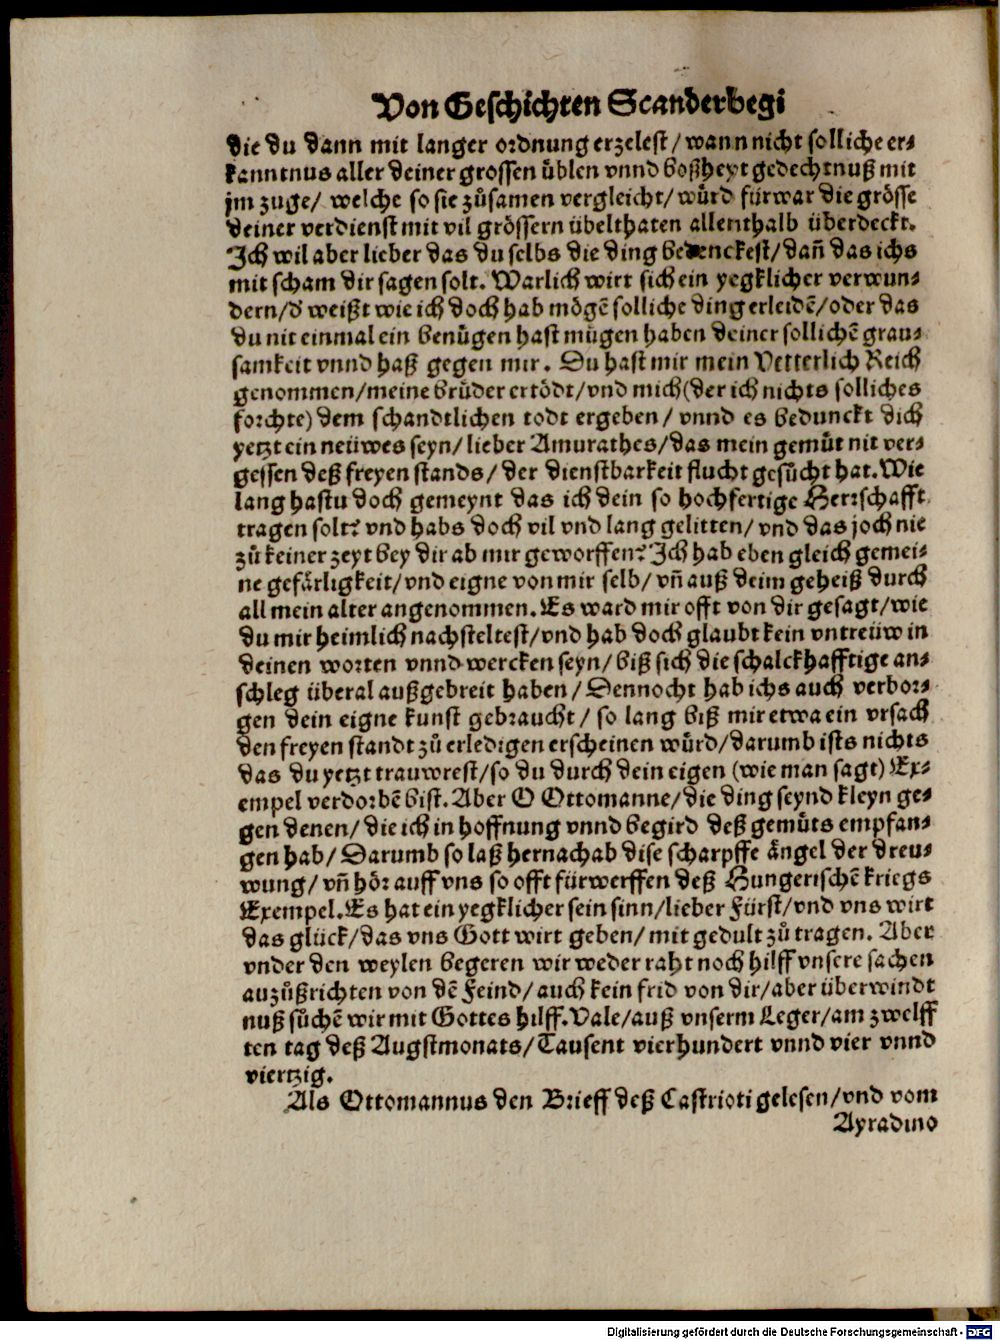 Von Geschichten Scanderbegi
die du dann mit langer ordnung erzelest/ wann nicht solliche er⸗
kanntnus aller deiner grossen üblen vnnd boßheyt gedechtnuß mit
jm zuge/ welche so sie zůsamen vergleicht/ würd fürwar die grösse
deiner verdienst mit vil grössern übelthaten allenthalb überdeckt.
Ich wil aber lieber das du selbs die ding bedenckest/ dañ das ichs
mit scham dir sagen solt. Warlich wirt sich ein yegklicher verwun⸗
dern/ d' weißt wie ich doch hab mögē solliche ding erleidē/ oder das
du nit einmal ein benügen hast mügen haben deiner sollichē grau⸗
samkeit vnnd haß gegen mir. Du hast mir mein Vetterlich Reich
genommen/ meine brüder ertödt/ vnd mich (der ich nichts solliches
forchte) dem schandtlichen todt ergeben/ vnnd es bedunckt dich
yetzt ein neüwes seyn/ lieber Amurathes/ das mein gemůt nit ver⸗
gessen deß freyen stands/ der dienstbarkeit flucht gesůcht hat. Wie
lang hastu doch gemeynt das ich dein so hochfertige Herrschafft
tragen solt? vnd habs doch vil vnd lang gelitten/ vnd das joch nie
zů keiner zeyt bey dir ab mir geworffen? Ich hab eben gleich gemei⸗
ne gefärligkeit/ vnd eigne von mir selb/ vñ auß deim geheiß durch
all mein alter angenommen. Es ward mir offt von dir gesagt/ wie
du mir heimlich nachsteltest/ vnd hab doch glaubt kein vntreüw in
deinen worten vnnd wercken seyn/ biß sich die schalckhafftige an⸗
schleg überal außgebreit haben/ Dennocht hab ichs auch verbor⸗
gen dein eigne kunst gebraucht/ so lang biß mir etwa ein vrsach
den freyen standt zů erledigen erscheinen würd/ darumb ists nichts
das du yetzt trauwrest/ so du durch dein eigen (wie man sagt) Ex⸗
empel verdorbē bist. Aber O Ottomanne/ die ding seynd kleyn ge⸗
gen denen/ die ich in hoffnung vnnd begird deß gemůts empfan⸗
gen hab/ Darumb so laß hernach ab dise scharpffe ängel der dreu⸗
wung/ vñ hör auff vns so offt fürwerffen deß Hungerischē kriegs
Exempel. Es hat ein yegklicher sein sinn/ lieber Fürst/ vnd vns wirt
das glück/ das vns Gott wirt geben/ mit gedult zů tragen. Aber
vnder den weylen begeren wir weder raht noch hilff vnsere sachen
auzůßrichten von dē Feind/ auch kein frid von dir/ aber überwindt
nuß sůchē wir mit Gottes hilff. Vale/ auß vnserm Leger/ am zwelff
ten tag deß Augstmonats/ Tausent vierhundert vnnd vier vnnd
viertzig.
Als Ottomannus den Brieff deß Castrioti gelesen/ vnd vom
Ayradino
Digitalisierung gefördert durch die Deutsche Forschungsgemeinschaft - DFG